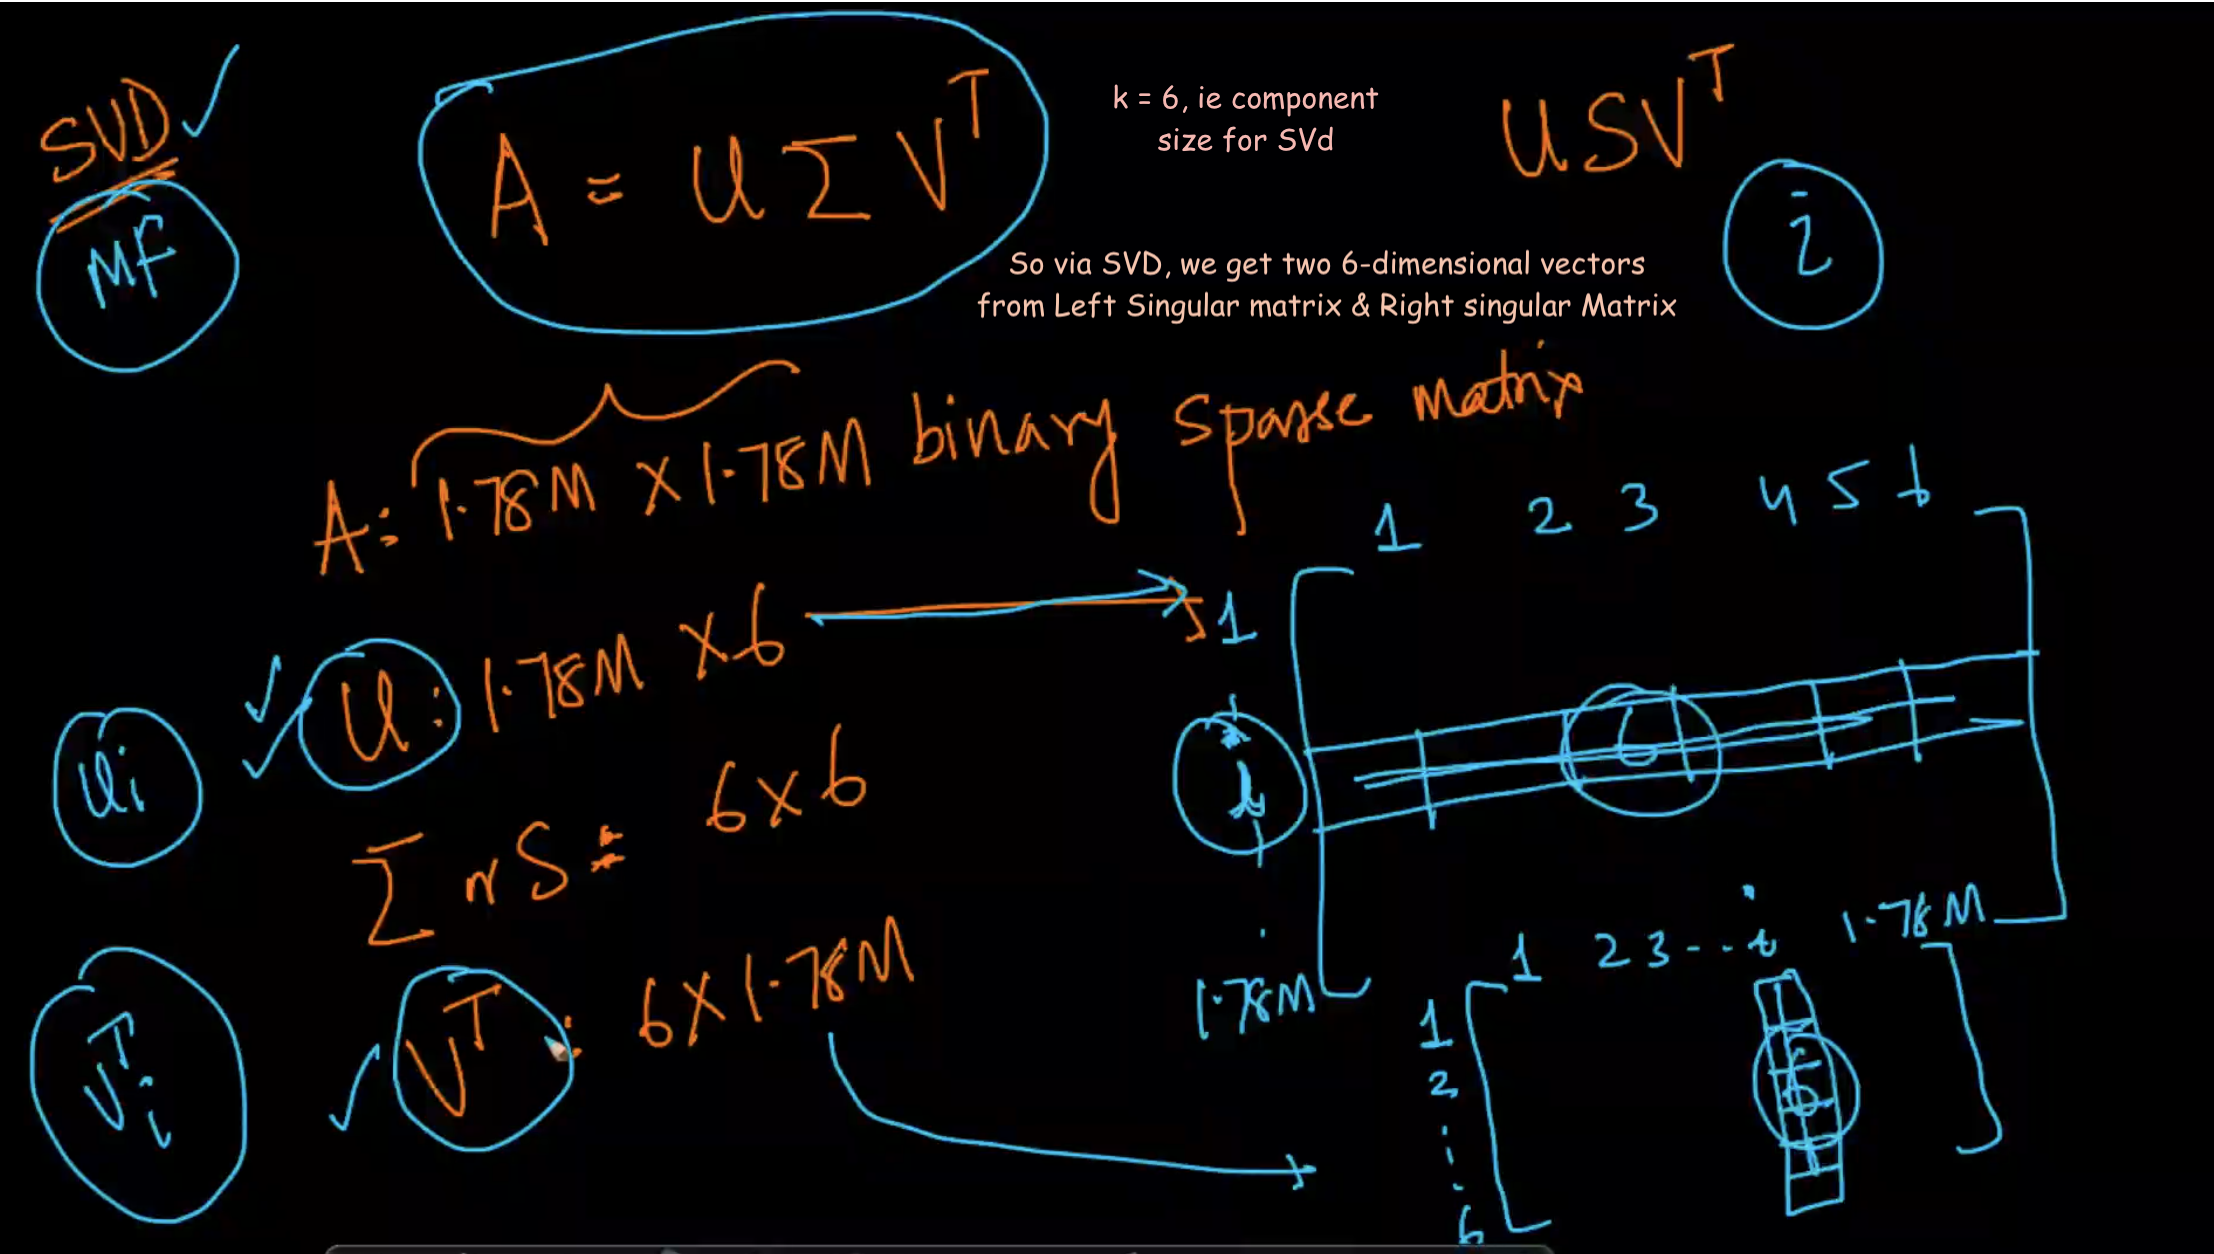 SVD
MF
A = U Σ V^T
k = 6, ie component
size for SVd
U S V^T
i
So via SVD, we get two 6-dimensional vectors
from Left Singular matrix & Right singular Matrix
A: 1.78M X 1.78M binary sparse matrix
Ui
U: 1.78M X 6
Σ or S = 6 X 6
V^T_i
V^T: 6 X 1.78M
1 2 3 4 5 6
1
i
6
1.78M
1 2 3 - - . i 1.78M
1
2
6
6